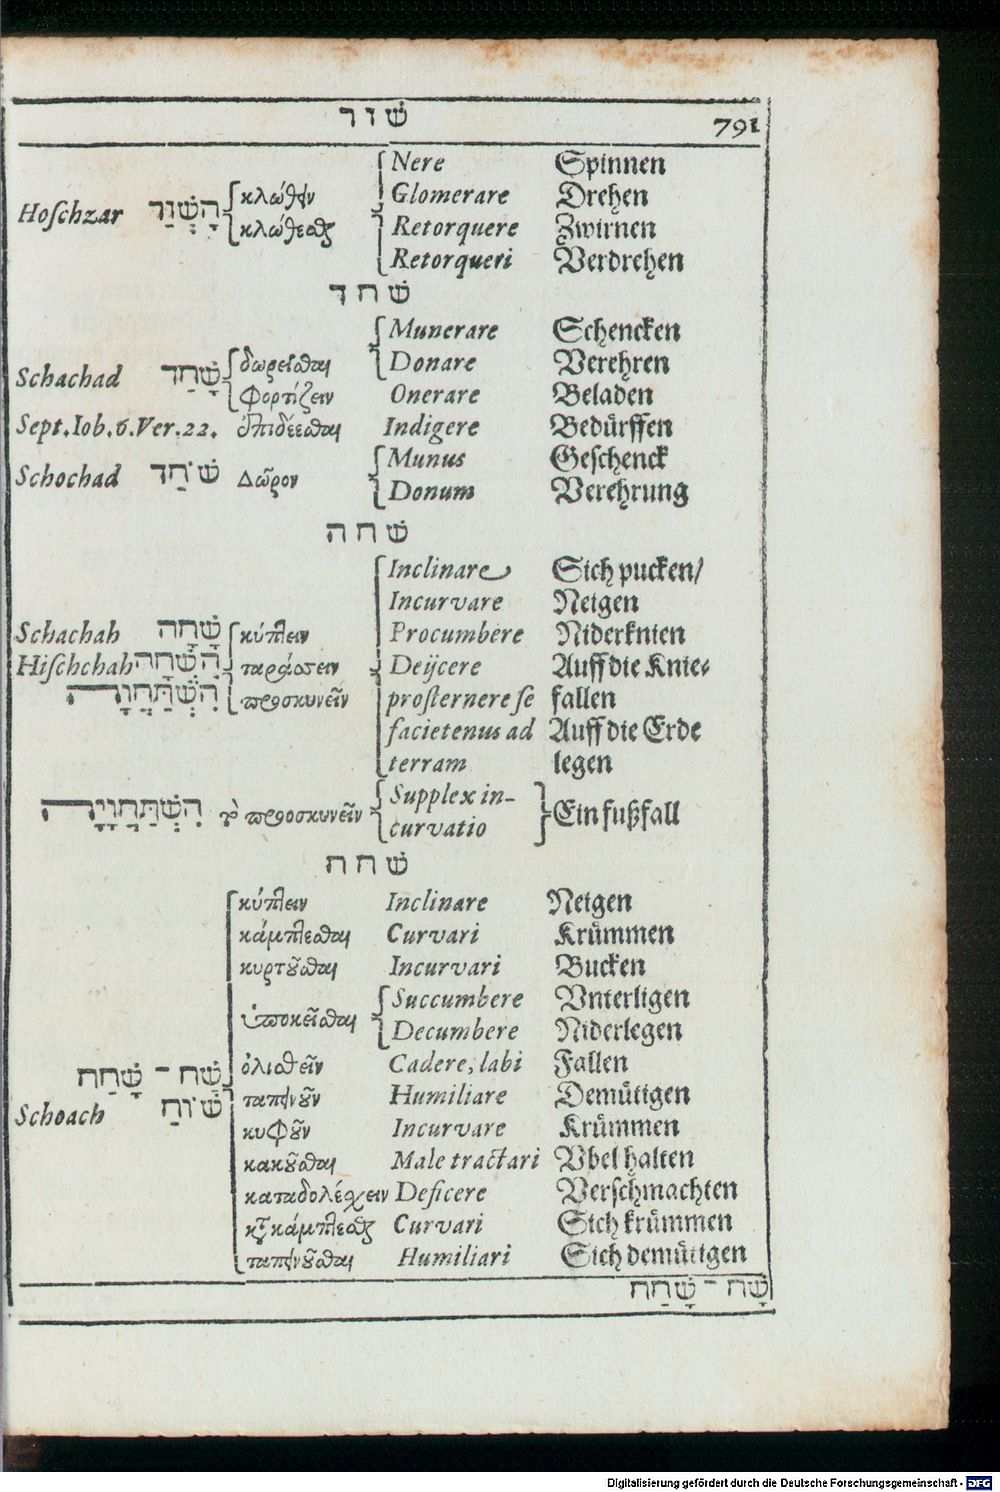 שׁור 791
Nere Spinnen
Hoſchzar הָשְׁזַר κλώθειν Glomerare Drehen
κλώθεσθαι Retorquere Zwirnen
Retorqueri Verdrehen
שׁחד
Munerare Schencken
Schachad שָׁחַד δωρεῖσθαι Donare Verehren
φορτίζειν Onerare Beladen
Sept. Iob. 6. Ver. 22. ἐπιδέεσθαι Indigere Bedürffen
Munus Geſchenck
Schochad שֹׁחַד Δῶρον Donum Verehrung
שׁחה
Inclinare Sich pucken/
Incurvare Neigen
Schachah שָׁחָה κύπτειν Procumbere Niderknien
Hiſchchah הִשְׁחָה ταράσσειν Deijcere Auff die Knie⸗
הִשְׁתַּחֲוָה προσκυνεῖν proſternere ſe fallen
facietenus ad Auff die Erde
terram legen
Supplex in-
הִשְׁתַּחֲוָיָה τὸ προσκυνεῖν curvatio Ein fußfall
שׁחח
κύπτειν Inclinare Neigen
κάμπτεσθαι Curvari Krümmen
κυρτοῦσθαι Incurvari Bucken
ὑποκεῖσθαι Succumbere Vnterligen
Decumbere Niderlegen
שַׁח - שָׁחַח ὀλισθεῖν Cadere, labi Fallen
Schoach שׁוֹחַ ταπεινοῦν Humiliare Demütigen
κυφοῦν Incurvare Krümmen
κακοῦσθαι Male tractari Vbel halten
καταδολέσχειν Deficere Verſchmachten
κατακάμπτεσθαι Curvari Sich krümmen
ταπεινοῦσθαι Humiliari Sich demütigen
שָׁח - שָׁחַח
Digitalisierung gefördert durch die Deutsche Forschungsgemeinschaft - DFG